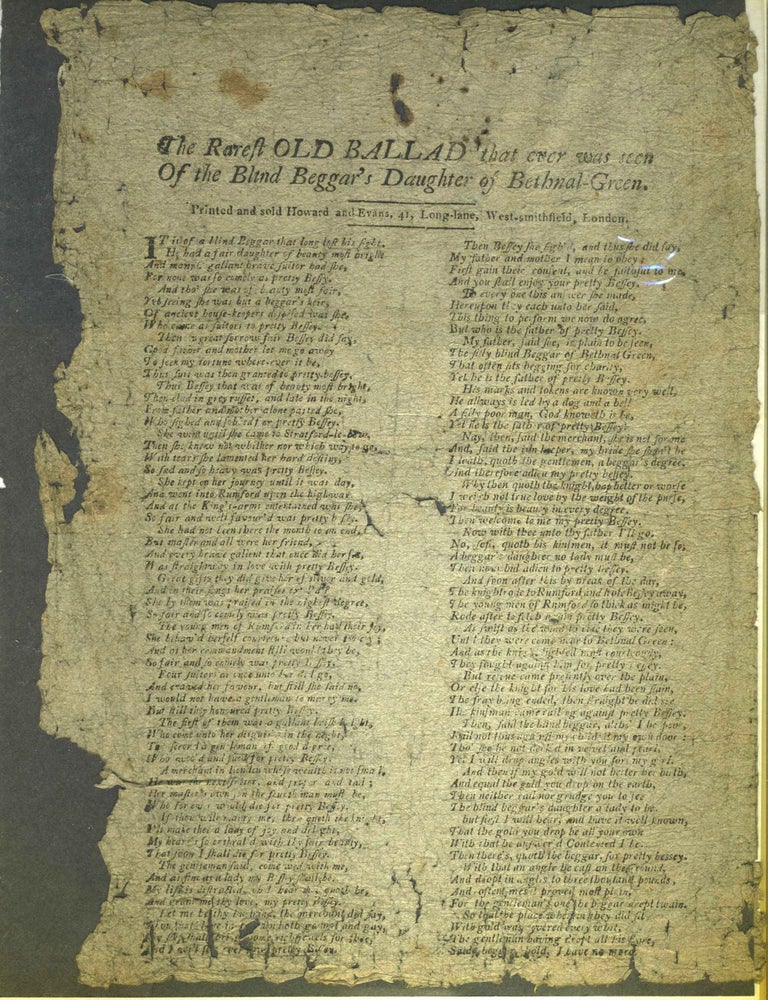 The Rarest OLD BALLAD that ever was seen
Of the Blind Beggar's Daughter of Bethnal-Green.
Printed and sold Howard and Evans, 41, Long-lane, West-smithfield, London.
IT is of a blind Beggar that long lost his sight,
He had a fair daughter of beauty most bright
And many a gallant brave suitor had she,
For none was so comely as pretty Bessey.
And tho' she was of beauty most fair,
Yet seeing she was but a beggar's heir,
Of ancient house-keepers despised was she,
Who came as suitors to pretty Bessey.
Then great sorrow fair Bessey did say,
Good father and mother let me go away
To seek my fortune where-ever it be,
This suit was then granted to pretty bessey.
Thus Bessey that was of beauty most bright,
Then clad in grey russet, and late in the night,
From father and mother alone parted she,
Who sighed and sobbed for pretty Bessey.
She went until she came to Stratford-le-Bow,
Then she knew not whither nor which way to go,
With tears she lamented her hard destiny,
So sad and so heavy was pretty Bessey.
She kept on her journey until it was day,
And went into Rumford upon the highway
And at the King's-arms entertained was she
So fair and well favour'd was pretty
She had not been there the month to an end,
But master and all were her friend,
And every brave gallent that once did her see,
Was straightway in love with pretty Bessey.
Great gifts they did give her of silver and gold,
And in their songs her praises
She by them was praised in the highest degree,
So fair and so comely was pretty Bessey.
The young men of Rumford in her had their joy,
She behav'd herself courteous but never
And at her commandment still would they be,
So fair and so comely was pretty
Four suitors at once unto her did go,
And craved her favour, but still she said no,
I would not have a gentleman to marry me.
But still they honoured pretty Bessey.
The first of them was a gallant
Who came unto her disguis'd in the night,
The second a gentleman of good degree,
Who wooed and sued for pretty Bessey.
A merchant in London whose wealth is not small,
He was the
Her master's own son the fourth man must be,
Who for ever would die for pretty Bessy.
If thou wilt marry me, then quoth the knight,
I'll make thee a lady of joy and delight,
My heart is so enthral'd with thy fair beauty,
That soon I shall die for pretty Bessey.
The gentleman said, come wed with me,
And as fine as a lady my Bessy shall be.
My life is distressed, oh! hear me, quoth he,
And grant me thy love, my pretty Bessey.
Let me be thy husband, the merchant did say,
both gallant and gay,
My ships shall bring home rich jewels for thee,
And I will for ever love pretty
Then Bessey she sigh'd, and thus she did say,
My father and mother I mean to obey;
First gain their consent, and be faithful to me,
And you shall enjoy your pretty Bessey.
To every one this answer she made,
Hereupon they each unto her said,
This thing to perform we now do agree,
But who is the father of pretty Bessey.
My father, said she, is plain to be seen,
The silly blind Beggar of Bethnal Green,
That often sits begging for charity,
Yet he is the father of pretty Bessey.
His marks and tokens are known very well,
He allways is led by a dog and a bell
A silly poor man, God knoweth is he,
Yet he is the father of pretty Bessey.
Nay, then, said the merchant, she is not for me
And, said the inn keeper, my bride she shan't be
I loath, quoth the gentleman, a beggar's degree,
And therefore adieu my pretty bessey.
Why then quoth the knight, hap better or worse
I weigh not true love by the weight of the purse,
For beauty is beauty in every degree,
Then welcome to me my pretty Bessey.
Now with thee unto thy father I'll go.
No, soft, quoth his kinsmen, it must not be so,
A beggar's daughter no lady must be,
Then now bid adieu to pretty bessey.
And soon after this by break of the day,
The knight rode to Rumford and stole Bessey away,
The young men of Rumford so thick as might be,
Rode after to fetch again pretty Bessey.
As swift as the wind to ride they were seen,
Until they were come near to Bethnal Green;
And as the knight lighted most courteously,
They fought against him for pretty
But rescue came presently over the plain,
Or else the knight for his love had been slain,
The fray being ended, then straight he did see
His kinsman came railing against pretty Bessey.
Then, said the blind beggar, altho' I be poor,
Rail not thus against my child at my own door:
Tho' she be not decked in velvet and pearl,
Yet I will drop angles with you for my girl.
And then if my gold will not better her birth,
And equal the gold you drop on the earth,
Then neither rail nor grudge you to see
The blind beggar's daughter a lady to be.
but first I will hear, and have it well known,
That the gold you drop be all your own
With that he answer'd Contented I be.
Then there's, quoth the beggar, for pretty bessey.
With that an angle he cast on the ground,
And dropt in angles to three thousand pounds,
And oftentimes it proved most plain,
For the gentleman's one the beggar dropt twain.
So that the place wherein they did sit
With gold was covered every whit.
The gentleman having dropt all his store,
Said, beggar, hold, I have no more